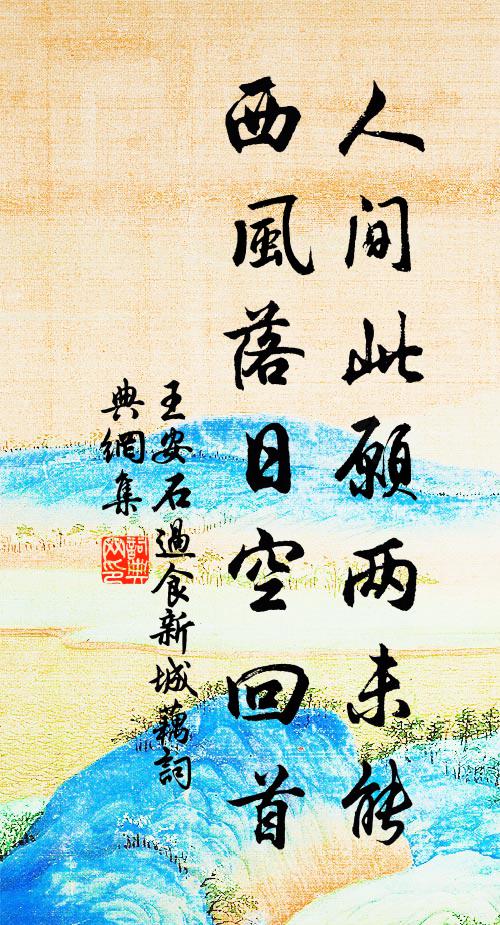 人间此愿两未能
西風落日空回首
王安石過食新城藕詞
典網集
詞典
網印